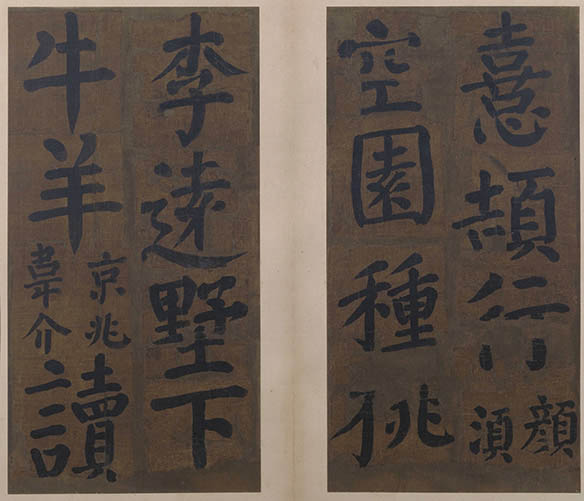 憙頡行顔湏
空園種桃
李遠墅下
牛羊京兆韋介讀